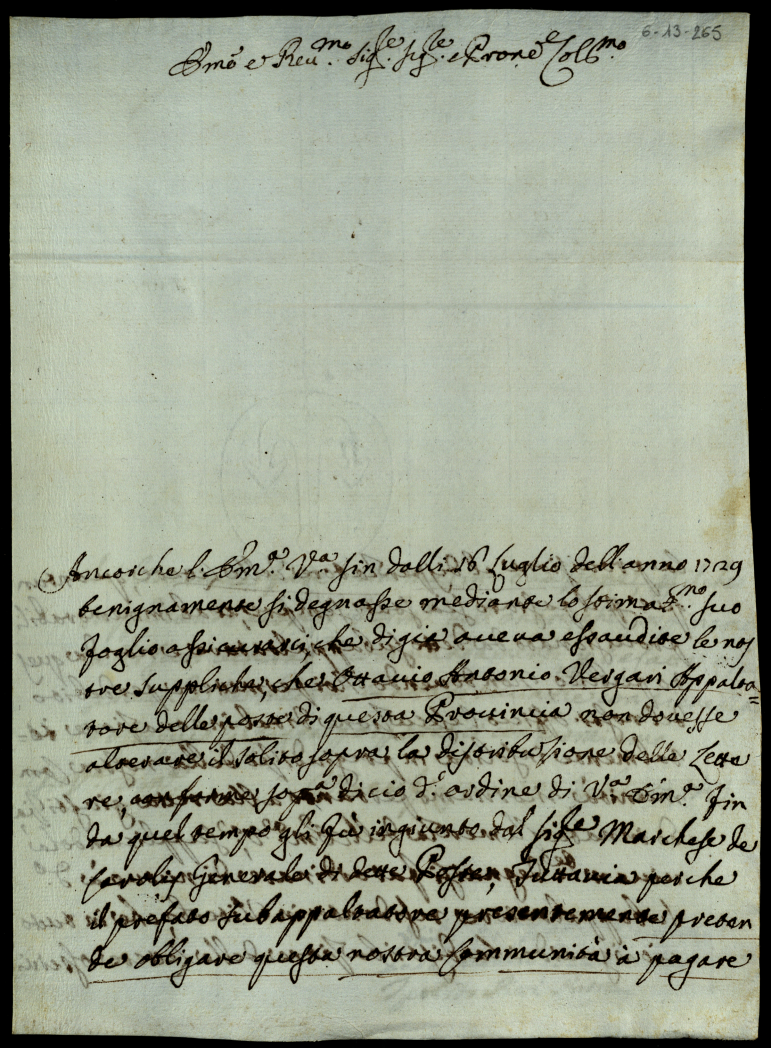 6-13-265
Em̃o e Reu.mo Sig.re Sig.re e Pron.e Col.mo
Ancorche l'Em.a V.a sin dalli 16 Luglio dell'anno 1729
benignamente si degnasse mediante lo stimat.mo suo
foglio assicurarci che di già aueua essaudite le nos
tre suppliche, che Ottauio Antonio Vergari Appalta=
tore delle poste di questa Prouincia non douesse
alterare il solito sopra la distribuzione delle Lette
re, conforme sop.a di ciò d'ordine di V.a Em.a fin
da quel tempo gli fù ingiunto dal Sig.re Marchese de
Carolis Generale di dette Poste, Tuttauia perche
il prefato Subappaltatore presentemente preten
de obligare questa nostra Communità à pagare